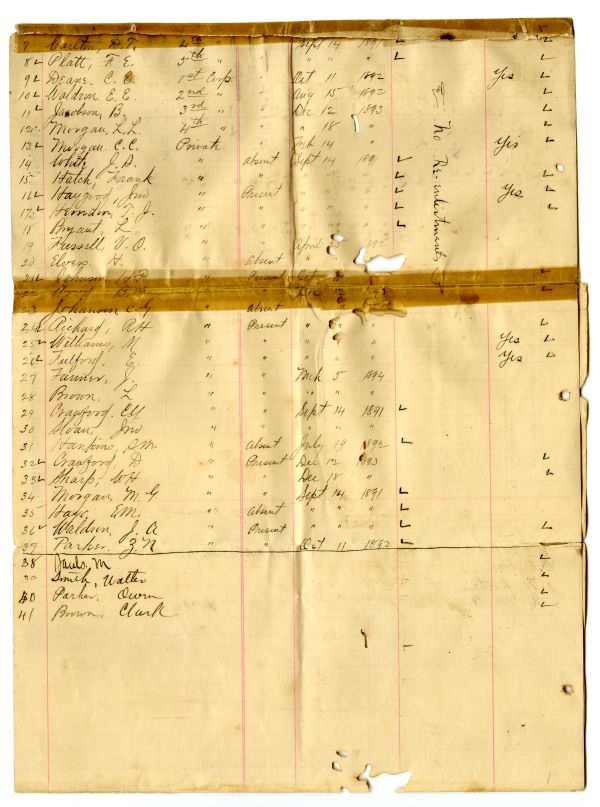 7 D. F. 4th " " Sept 14 1891 ✓
8 ✓ Platt, F. E. 5th " " " " " ✓ ✓
9 ✓ Deane, C. C. 1st Corp. " Oct 11 1892 Yes ✓
10 ✓ Waldron E. E. 2nd " " Aug 15 1892 ✓
11 ✓ Jacobson, B. 3rd " " Dec 12 1893 ✓
12 ✓ Morgan, L. L. 4th " " " 18 " ✓
13 ✓ Morgan, C. C. " Feb 14 " Yes ✓
14 J. D. " Absent Sept 14 1891 ✓
15 Hatch, Frank " " " " " ✓ ✓
16 ✓ Haygood, Jno " Present " " " ✓ Yes ✓
17 ✓ Herndon, T. J. " " " " " ✓ ✓
18 Bryant, L. " " " " " ✓
19 V. O. " " April 1892
20 Elvers, H. " Absent
21 ✓ Johnson, " Present Oct ✓
22 Dec ✓
23 Johansen C. G. " Absent " "
24 ✓ Richard, R H " Present " " " ✓
25 ✓ Williams, N " " " " " Yes ✓
26 ✓ Fulford, E. " " " " " Yes ✓
27 J. " " Mch 5 1894
28 Brown, L " " " " "
29 Crawford, " " Sept 14 1891 ✓
30 Sloan, Jno " " " " "
31 Hankins, S M " Absent July 19 1892 ✓
32 ✓ Crawford, D " Present Dec 12 1893 ✓
33 ✓ Sharp, W H " " Dec 18 " ✓
34 Morgan, M. G " " Sept 14 1891 ✓
35 E M. " Absent " " " ✓
36 ✓ Waldron, J. A " Present " " " ✓ ✓
37 Parker, Z. N " " Oct 11 1892 ✓ ✓
38 M ✓
39 Smith, Walter ✓
40 Parker, Owen ✓
41 Brown, Clark ✓
No Re-enlistments